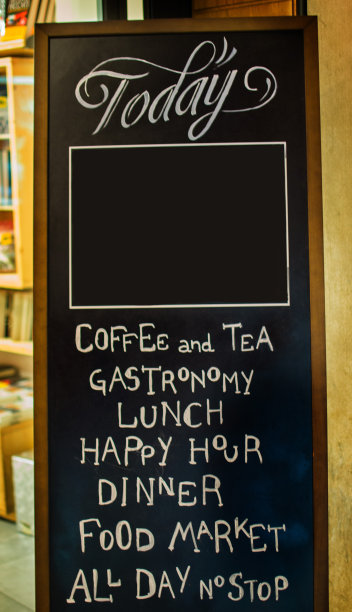 Today
COFFEE and TEA
GASTRONOMY
LUNCH
HAPPY HOUR
DINNER
FOOD MARKET
ALL DAY NOSTOP